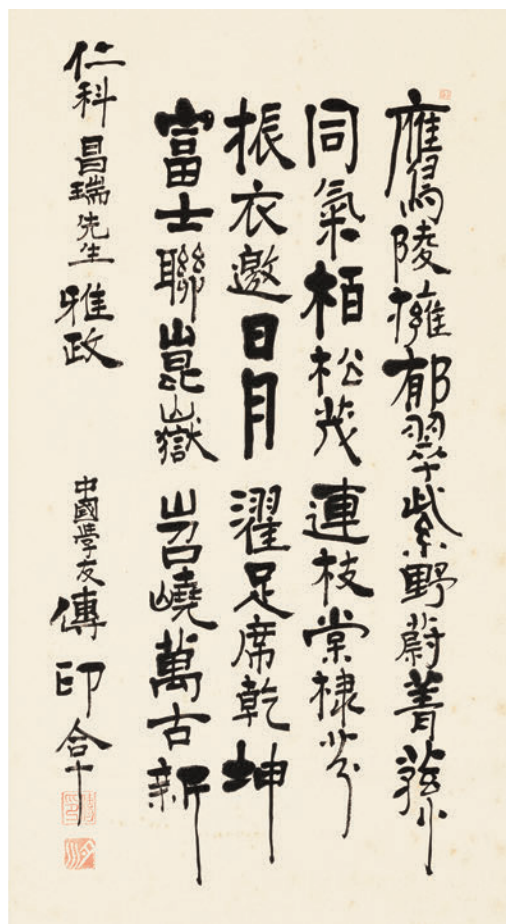 鷹陵擁郁翠紫野蔚菁蓀
同氣柏松茂連枝棠棣芬
振衣邀日月濯足席乾坤
富士聯崑嶽岧嶢萬古新
仁科昌瑞先生雅政
中國學友傳印合十